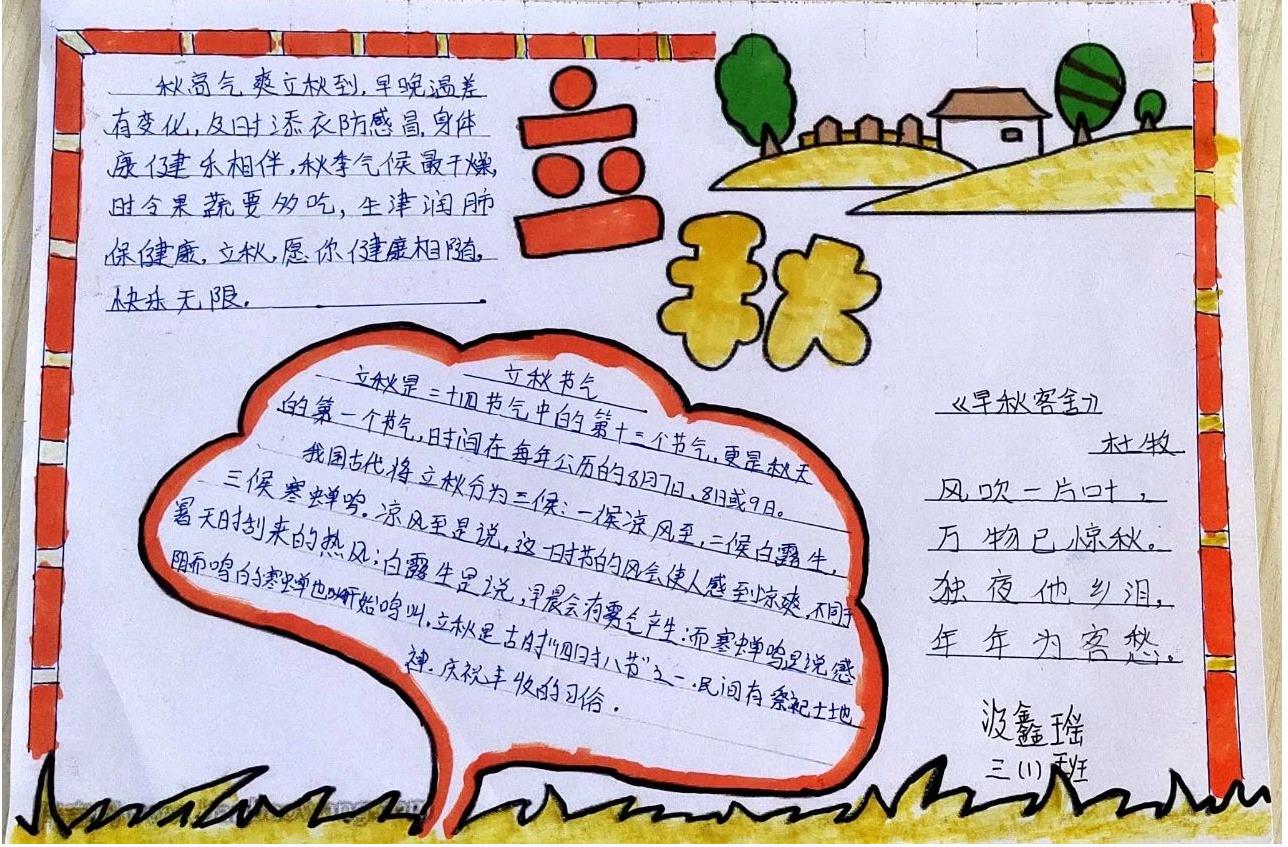 立秋
秋高气爽立秋到,早晚温差
有变化,及时添衣防感冒,身体
康健乐相伴,秋季气候最干燥,
时令果蔬要多吃,生津润肺
保健康,立秋,愿你健康相随,
快乐无限。
立秋节气
立秋是二十四节气中的第十三个节气,更是秋天
的第一个节气,时间在每年公历的8月7日、8日或9日。
我国古代将立秋分为三候:一候凉风至,二候白露生,
三候寒蝉鸣。凉风至是说,这一时节的风会使人感到凉爽,不同于
暑天时刮来的热风;白露生是说,早晨会有雾气产生;而寒蝉鸣是说感
阴而鸣的寒蝉也开始鸣叫,立秋是古时“四时八节”之一,民间有祭祀土地
神.庆祝丰收的习俗.
《早秋客舍》
杜牧
风吹一片叶,
万物已惊秋。
独夜他乡泪,
年年为客愁。
鑫瑶
三(1)班